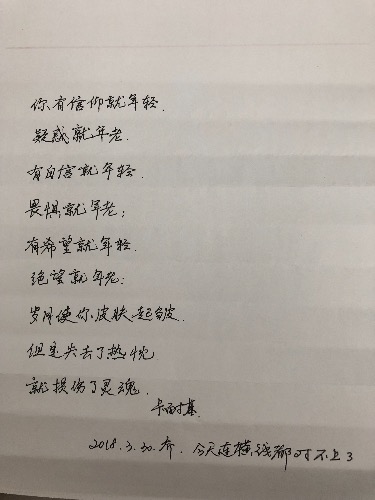 你有信仰就年轻.
疑惑就年老.
有自信就年轻.
畏惧就年老;
有希望就年轻.
绝望就年老;
岁月使你皮肤起皱.
但是失去了热忱
就损伤了灵魂.
卡耐基.
2018.3.30.齐. 今天连横线都对不上了